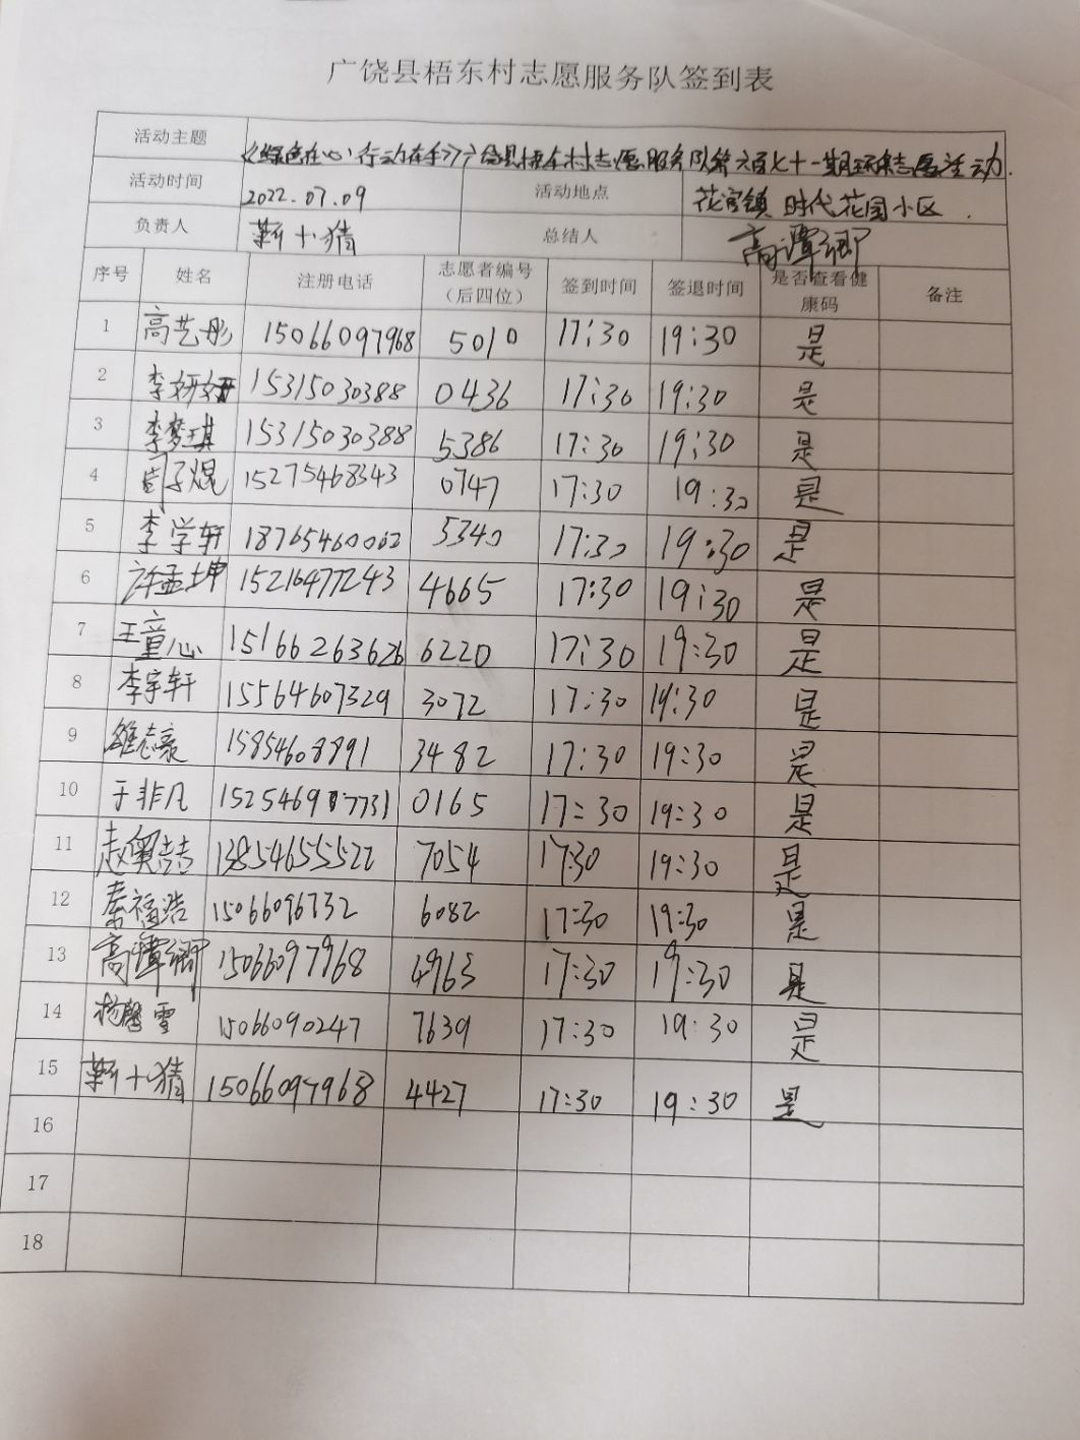 广饶县梧东村志愿服务队签到表
活动主题 《绿色在心,行动在手》广饶县梧东村志愿服务队第六百七十一期环保志愿活动.
活动时间 2022.07.09 活动地点 花官镇 时代花园小区.
负责人 靳小猜 总结人 高谭卿
序号 姓名 注册电话 志愿者编号(后四位) 签到时间 签退时间 是否查看健康码 备注
1 高艺彤 15066097968 5010 17:30 19:30 是
2 李妍妍 15315030388 0436 17:30 19:30 是
3 李梦琪 15315030388 5386 17:30 19:30 是
4 子焜 15275468343 0747 17:30 19:30 是
5 李学轩 18765460002 5340 17:30 19:30 是
6 许孟坤 15216477243 4665 17:30 19:30 是
7 王童心 15166263626 6220 17:30 19:30 是
8 李宇轩 15564607329 3072 17:30 19:30 是
9 志豪 15854608891 3482 17:30 19:30 是
10 于非凡 0165 17:30 19:30 是
11 赵奥喆 13854655522 7054 17:30 19:30 是
12 秦福浩 15066096732 6082 17:30 19:30 是
13 高谭卿 15066097968 4963 17:30 19:30 是
14 杨馨雪 15066090247 7639 17:30 19:30 是
15 靳小猜 15066097968 4427 17:30 19:30 是
16
17
18